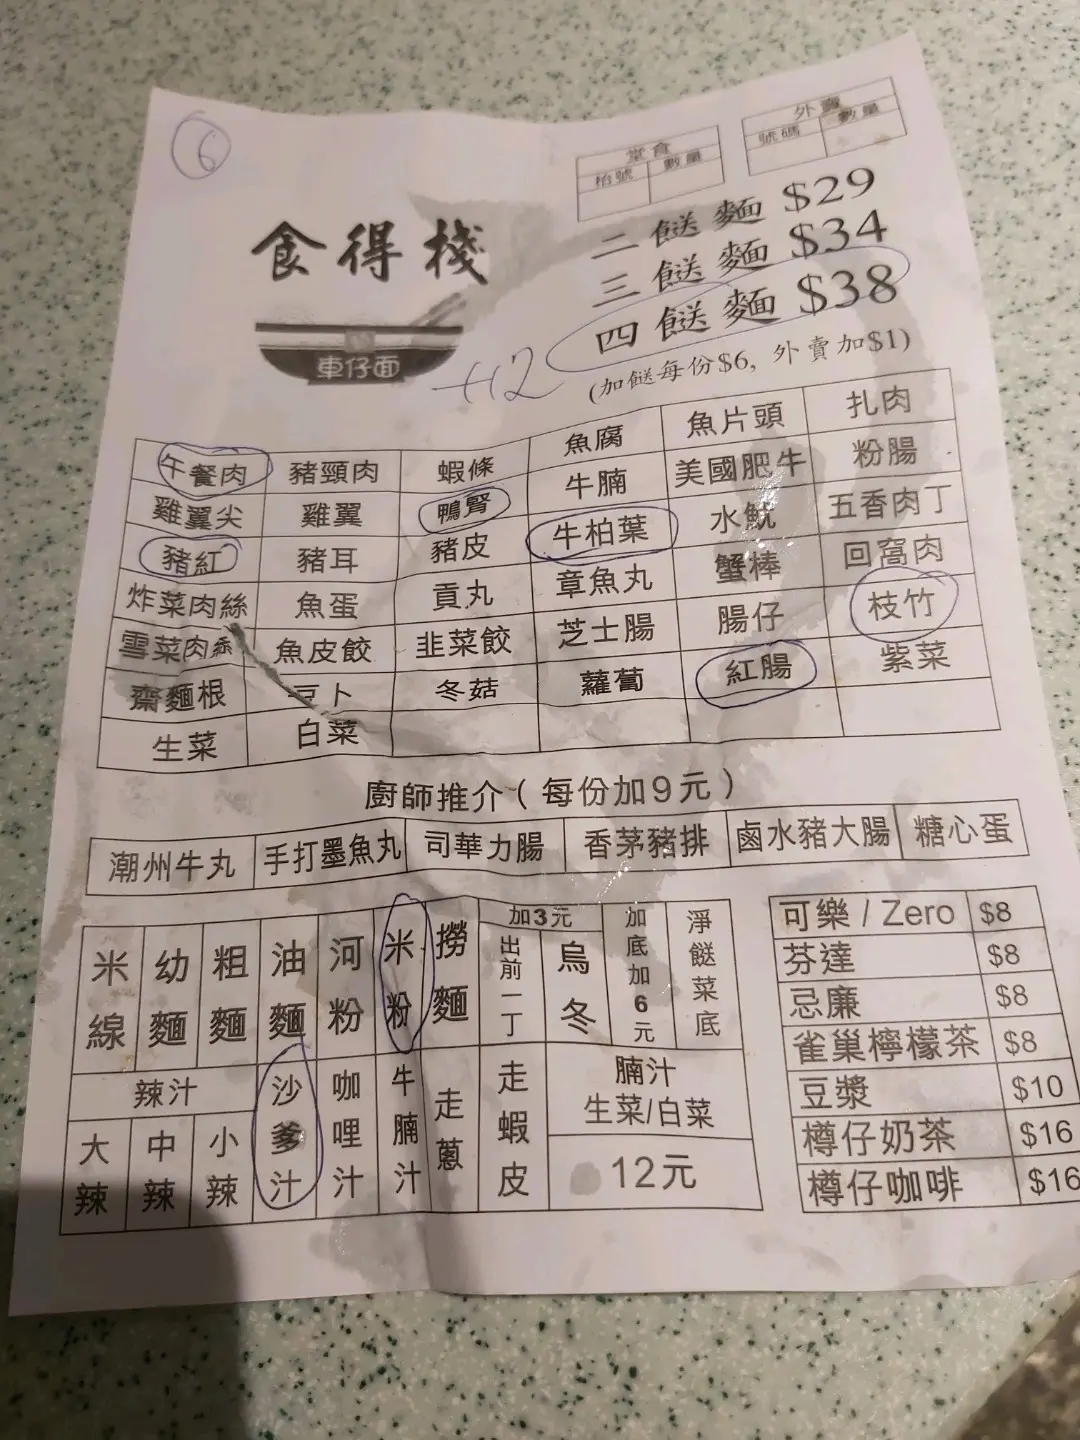 6
堂食
枱號 數量
外賣
號碼 數量
食得棧
車仔面
二餸麵 $29
三餸麵 $34
四餸麵 $38
+12
(加餸每份$6, 外賣加$1)
午餐肉 豬頸肉 蝦條 魚腐 魚片頭 扎肉
雞翼尖 雞翼 鴨腎 牛腩 美國肥牛 粉腸
豬紅 豬耳 豬皮 牛柏葉 水魷 五香肉丁
炸菜肉絲 魚蛋 貢丸 章魚丸 蟹棒 回窩肉
雪菜肉絲 魚皮餃 韭菜餃 芝士腸 腸仔 枝竹
齋麵根 豆卜 冬菇 蘿蔔 紅腸 紫菜
生菜 白菜
廚師推介 (每份加9元)
潮州牛丸 手打墨魚丸 司華力腸 香茅豬排 鹵水豬大腸 糖心蛋
米線 幼麵 粗麵 油麵 河粉 米粉 撈麵
加3元
出前一丁 烏冬
加底加6元
淨餸菜底
辣汁
大辣 中辣 小辣
沙爹汁 咖哩汁 牛腩汁 走蔥 走蝦皮
腩汁
生菜/白菜
12元
可樂 / Zero $8
芬達 $8
忌廉 $8
雀巢檸檬茶 $8
豆漿 $10
樽仔奶茶 $16
樽仔咖啡 $16